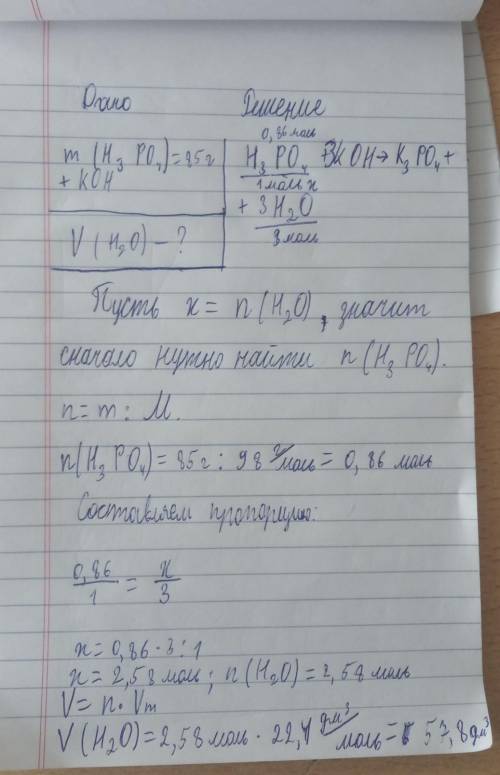 Дано Решение
0,86 моль
m (H₃PO₄) = 85 г H₃PO₄ + 3KOH → K₃PO₄ +
+ KOH 1 моль x
+ 3H₂O
V (H₂O) - ? 3 моль
Пусть x = n (H₂O), значит
сначало нужно найти n (H₃PO₄).
n = m : M.
n(H₃PO₄) = 85 г : 98 г/моль = 0,86 моль
Составляем пропорцию:
0,86/1 = x/3
x = 0,86 · 3 : 1
x = 2,58 моль; n (H₂O) = 2,58 моль
V = n · Vm
V (H₂O) = 2,58 моль · 22,4 дм³/моль = 57,8 дм³